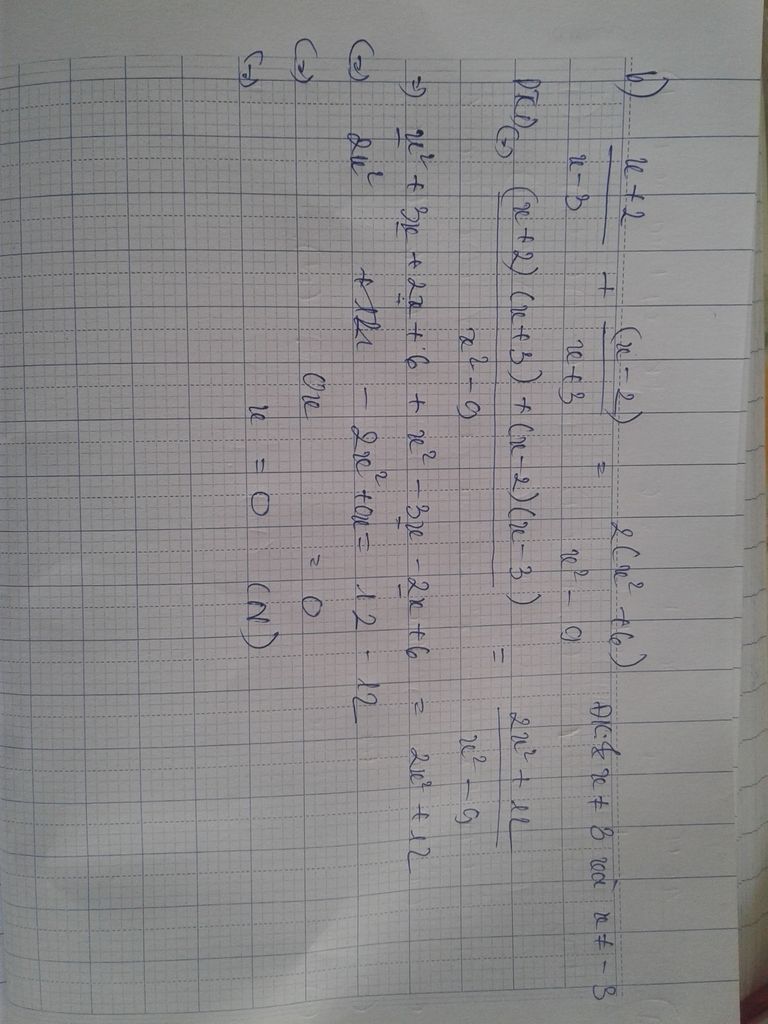 b) x+2 / x-3 + (x-2) / x+3 = 2(x²+6) / x²-9 ĐK: x ≠ 3 và x ≠ -3
(=) (x+2)(x+3) + (x-2)(x-3) / x²-9 = 2x²+12 / x²-9
=) x² + 3x + 2x + 6 + x² - 3x - 2x + 6 = 2x² + 12
(=) 2x² - 2x² + 0x = 12 - 12
(=) 0x = 0
(=) x = 0 (N)